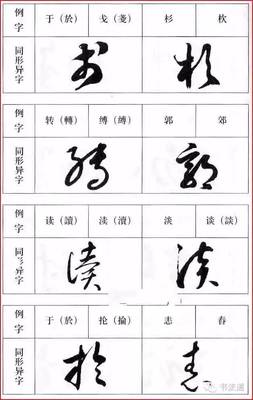 例字 于（於） 戋（戔） 杉
同形异字
例字 转（轉） 缚（縛） 郭 郊
同形异字
例字 读（讀） 渎（瀆） 淡 谈（談）
同形异字
例字 于（於） 抡（掄） 恚 春
同形异字